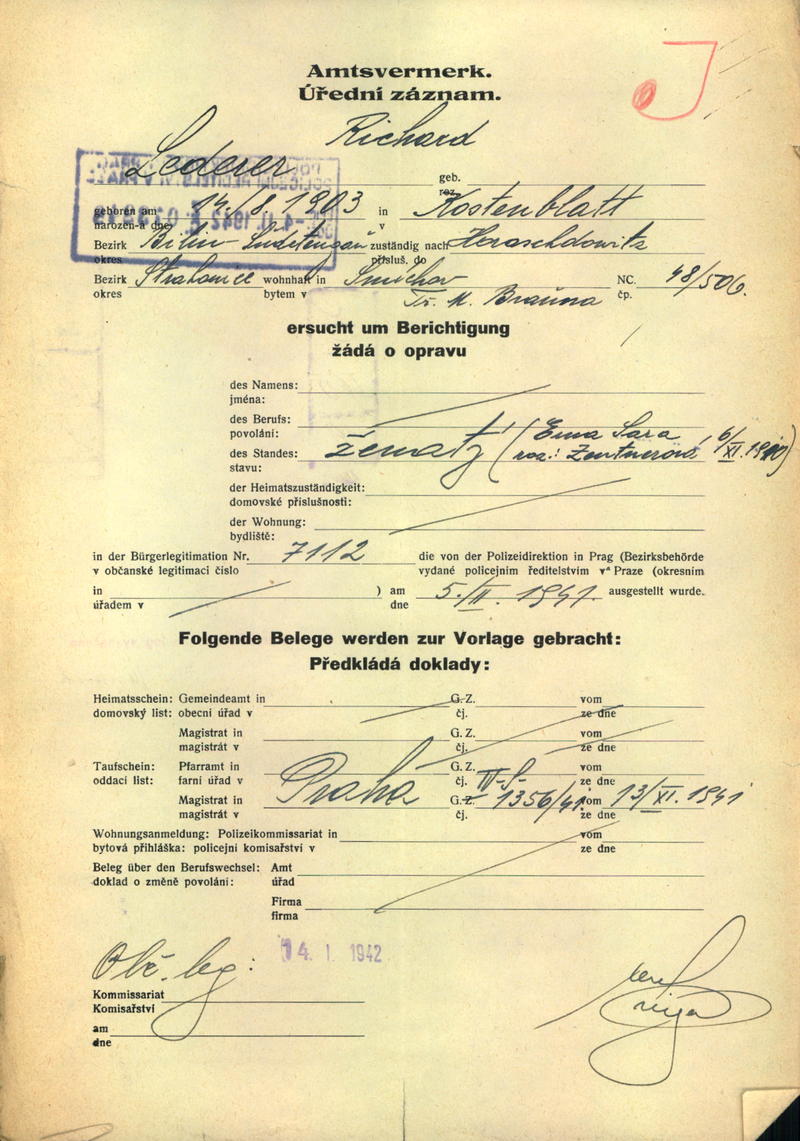 J
Amtsvermerk.
Úřední záznam.
Lederer Richard
geb.
roz.
geboren am 14./8. 1903 in Kostenblatt
narozen-a dne v
Bezirk Bilin-Sudetengau zuständig nach Heraschdowitz
okres přísluš. do
Bezirk Strakonice wohnhaft in Smíchov NC. 48/506.
okres bytem v Tř. M. Brauna čp.
ersucht um Berichtigung
žádá o opravu
des Namens:
jména:
des Berufs:
povolání: (Ema Sara
des Standes: ženatý roz.: Zentnerová, 6/XI. 1941)
stavu:
der Heimatszuständigkeit:
domovské příslušnosti:
der Wohnung:
bydliště:
in der Bürgerlegitimation Nr. 7112 die von der Polizeidirektion in Prag (Bezirksbehörde
v občanské legitimaci číslo vydané policejním ředitelstvím v Praze (okresním
in ) am 5./II. 1941. ausgestellt wurde.
úřadem v dne
Folgende Belege werden zur Vorlage gebracht:
Předkládá doklady:
Heimatsschein: Gemeindeamt in G. Z. vom
domovský list: obecní úřad v čj. ze dne
Magistrat in G. Z. vom
magistrát v čj. ze dne
Taufschein: Pfarramt in G. Z. vom
oddací list: farní úřad v čj. ze dne
Magistrat in Praha G. Z. 1356/41 vom 13/XI. 1941
magistrát v čj. ze dne
Wohnungsanmeldung: Polizeikommissariat in vom
bytová přihláška: policejní komisařství v ze dne
Beleg über den Berufswechsel: Amt
doklad o změně povolání: úřad
Firma
firma
14. I. 1942
Obč. leg:
Kommissariat
Komisařství
am
dne